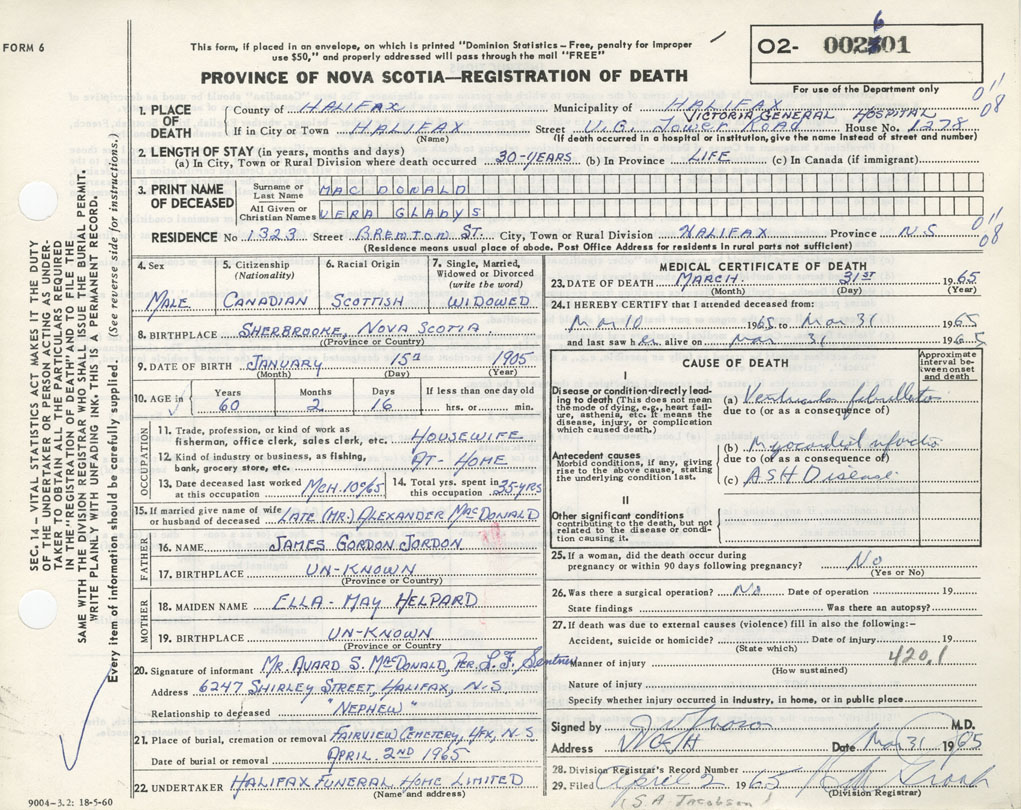 FORM 6
This form, if placed in an envelope, on which is printed "Dominion Statistics – Free, penalty for improper
use $50," and properly addressed will pass through the mail "FREE"
PROVINCE OF NOVA SCOTIA—REGISTRATION OF DEATH
O2- 002601
6
For use of the Department only
SEC. 14 – VITAL STATISTICS ACT MAKES IT THE DUTY
OF THE UNDERTAKER OR PERSON ACTING AS UNDER-
TAKER TO OBTAIN ALL THE PARTICULARS REQUIRED
IN THE "REGISTRATION OF DEATH" AND TO FILE THE
SAME WITH THE DIVISION REGISTRAR WHO SHALL ISSUE THE BURIAL PERMIT.
WRITE PLAINLY WITH UNFADING INK. THIS IS A PERMANENT RECORD.
Every item of information should be carefully supplied. (See reverse side for instructions.)
1. PLACE OF DEATH
County of HALIFAX Municipality of HALIFAX
VICTORIA GENERAL HOSPITAL
If in City or Town HALIFAX Street V.G. Tower Road House No. 1278
(Name) (If death occurred in a hospital or institution, give the name instead of street and number)
2. LENGTH OF STAY (in years, months and days)
(a) In City, Town or Rural Division where death occurred 30-YEARS (b) In Province LIFE (c) In Canada (if immigrant)
3. PRINT NAME OF DECEASED
Surname or Last Name MAC DONALD
All Given or Christian Names VERA GLADYS
RESIDENCE No 1323 Street BREMTON ST. City, Town or Rural Division HALIFAX Province N.S
(Residence means usual place of abode. Post Office Address for residents in rural parts not sufficient)
011
08
011
08
4. Sex
MALE
5. Citizenship (Nationality)
CANADIAN
6. Racial Origin
SCOTTISH
7. Single, Married, Widowed or Divorced (write the word)
WIDOWED
8. BIRTHPLACE SHERBROOKE, NOVA SCOTIA.
(Province or Country)
9. DATE OF BIRTH JANUARY 15th 1905
(Month) (Day) (Year)
10. AGE in
Years 60
Months 2
Days 16
If less than one day old
hrs. or min.
OCCUPATION
11. Trade, profession, or kind of work as
fisherman, office clerk, sales clerk, etc. HOUSEWIFE
12. Kind of industry or business, as fishing,
bank, grocery store, etc. AT-HOME
13. Date deceased last worked
at this occupation MCH. 10th/65
14. Total yrs. spent in
this occupation 35-YRS
15. If married give name of wife
or husband of deceased LATE (MR.) ALEXANDER MACDONALD
FATHER
16. NAME JAMES GORDON JORDON
17. BIRTHPLACE UN-KNOWN
(Province or Country)
MOTHER
18. MAIDEN NAME ELLA-MAY HELPARD
19. BIRTHPLACE UN-KNOWN
(Province or Country)
20. Signature of informant MR. AVARD S. MACDONALD, PER. L.F.
Address 6247 SHIRLEY STREET, HALIFAX, N.S
Relationship to deceased "NEPHEW"
21. Place of burial, cremation or removal FAIRVIEW CEMETERY, HFX, N.S
Date of burial or removal APRIL 2ND 1965
22. UNDERTAKER HALIFAX FUNERAL HOME LIMITED
(Name and address)
9004-3.2: 18-5-60
MEDICAL CERTIFICATE OF DEATH
23. DATE OF DEATH MARCH 31ST 1965
(Month) (Day) (Year)
24. I HEREBY CERTIFY that I attended deceased from:
Mar 10 1965 to Mar 31 1965
and last saw her alive on Mar 31 1965
CAUSE OF DEATH
Approximate interval between onset and death
I
Disease or condition directly lead-
ing to death (This does not mean
the mode of dying, e.g., heart fail-
ure, asthenia, etc. It means the
disease, injury, or complication
which caused death.)
(a) Ventricular fibrillation
due to (or as a consequence of)
Antecedent causes
Morbid conditions, if any, giving
rise to the above cause, stating
the underlying condition last.
(b) Myocardial infarction
due to (or as a consequence of)
(c) ASH Disease
II
Other significant conditions
contributing to the death, but not
related to the disease or condi-
tion causing it.
25. If a woman, did the death occur during
pregnancy or within 90 days following pregnancy? No
(Yes or No)
26. Was there a surgical operation? No Date of operation 19
State findings Was there an autopsy?
27. If death was due to external causes (violence) fill in also the following:–
Accident, suicide or homicide? Date of injury 19
(State which)
420.1
Manner of injury
(How sustained)
Nature of injury
Specify whether injury occurred in industry, in home, or in public place
Signed by M.D.
Address VGH Date Mar 31 1965
28. Division Registrar's Record Number
29. Filed April 2 1965
(Division Registrar)
(S.A. Jacobson)